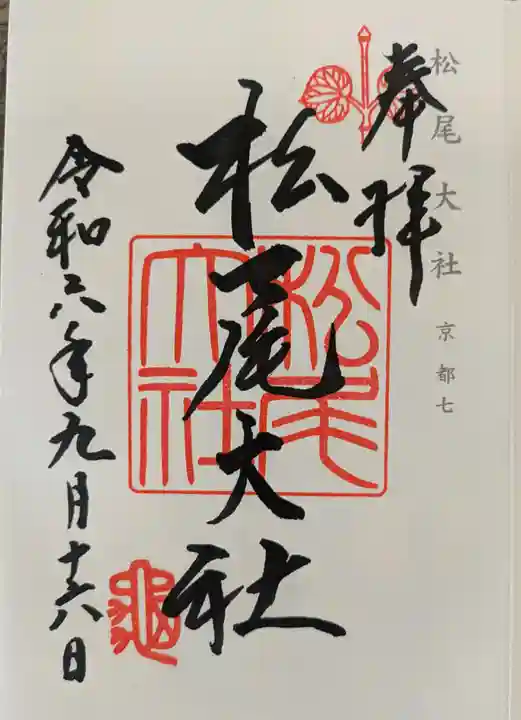 松尾大社 京都七
奉拝
松尾大社
松尾大社
令和六年九月十六日